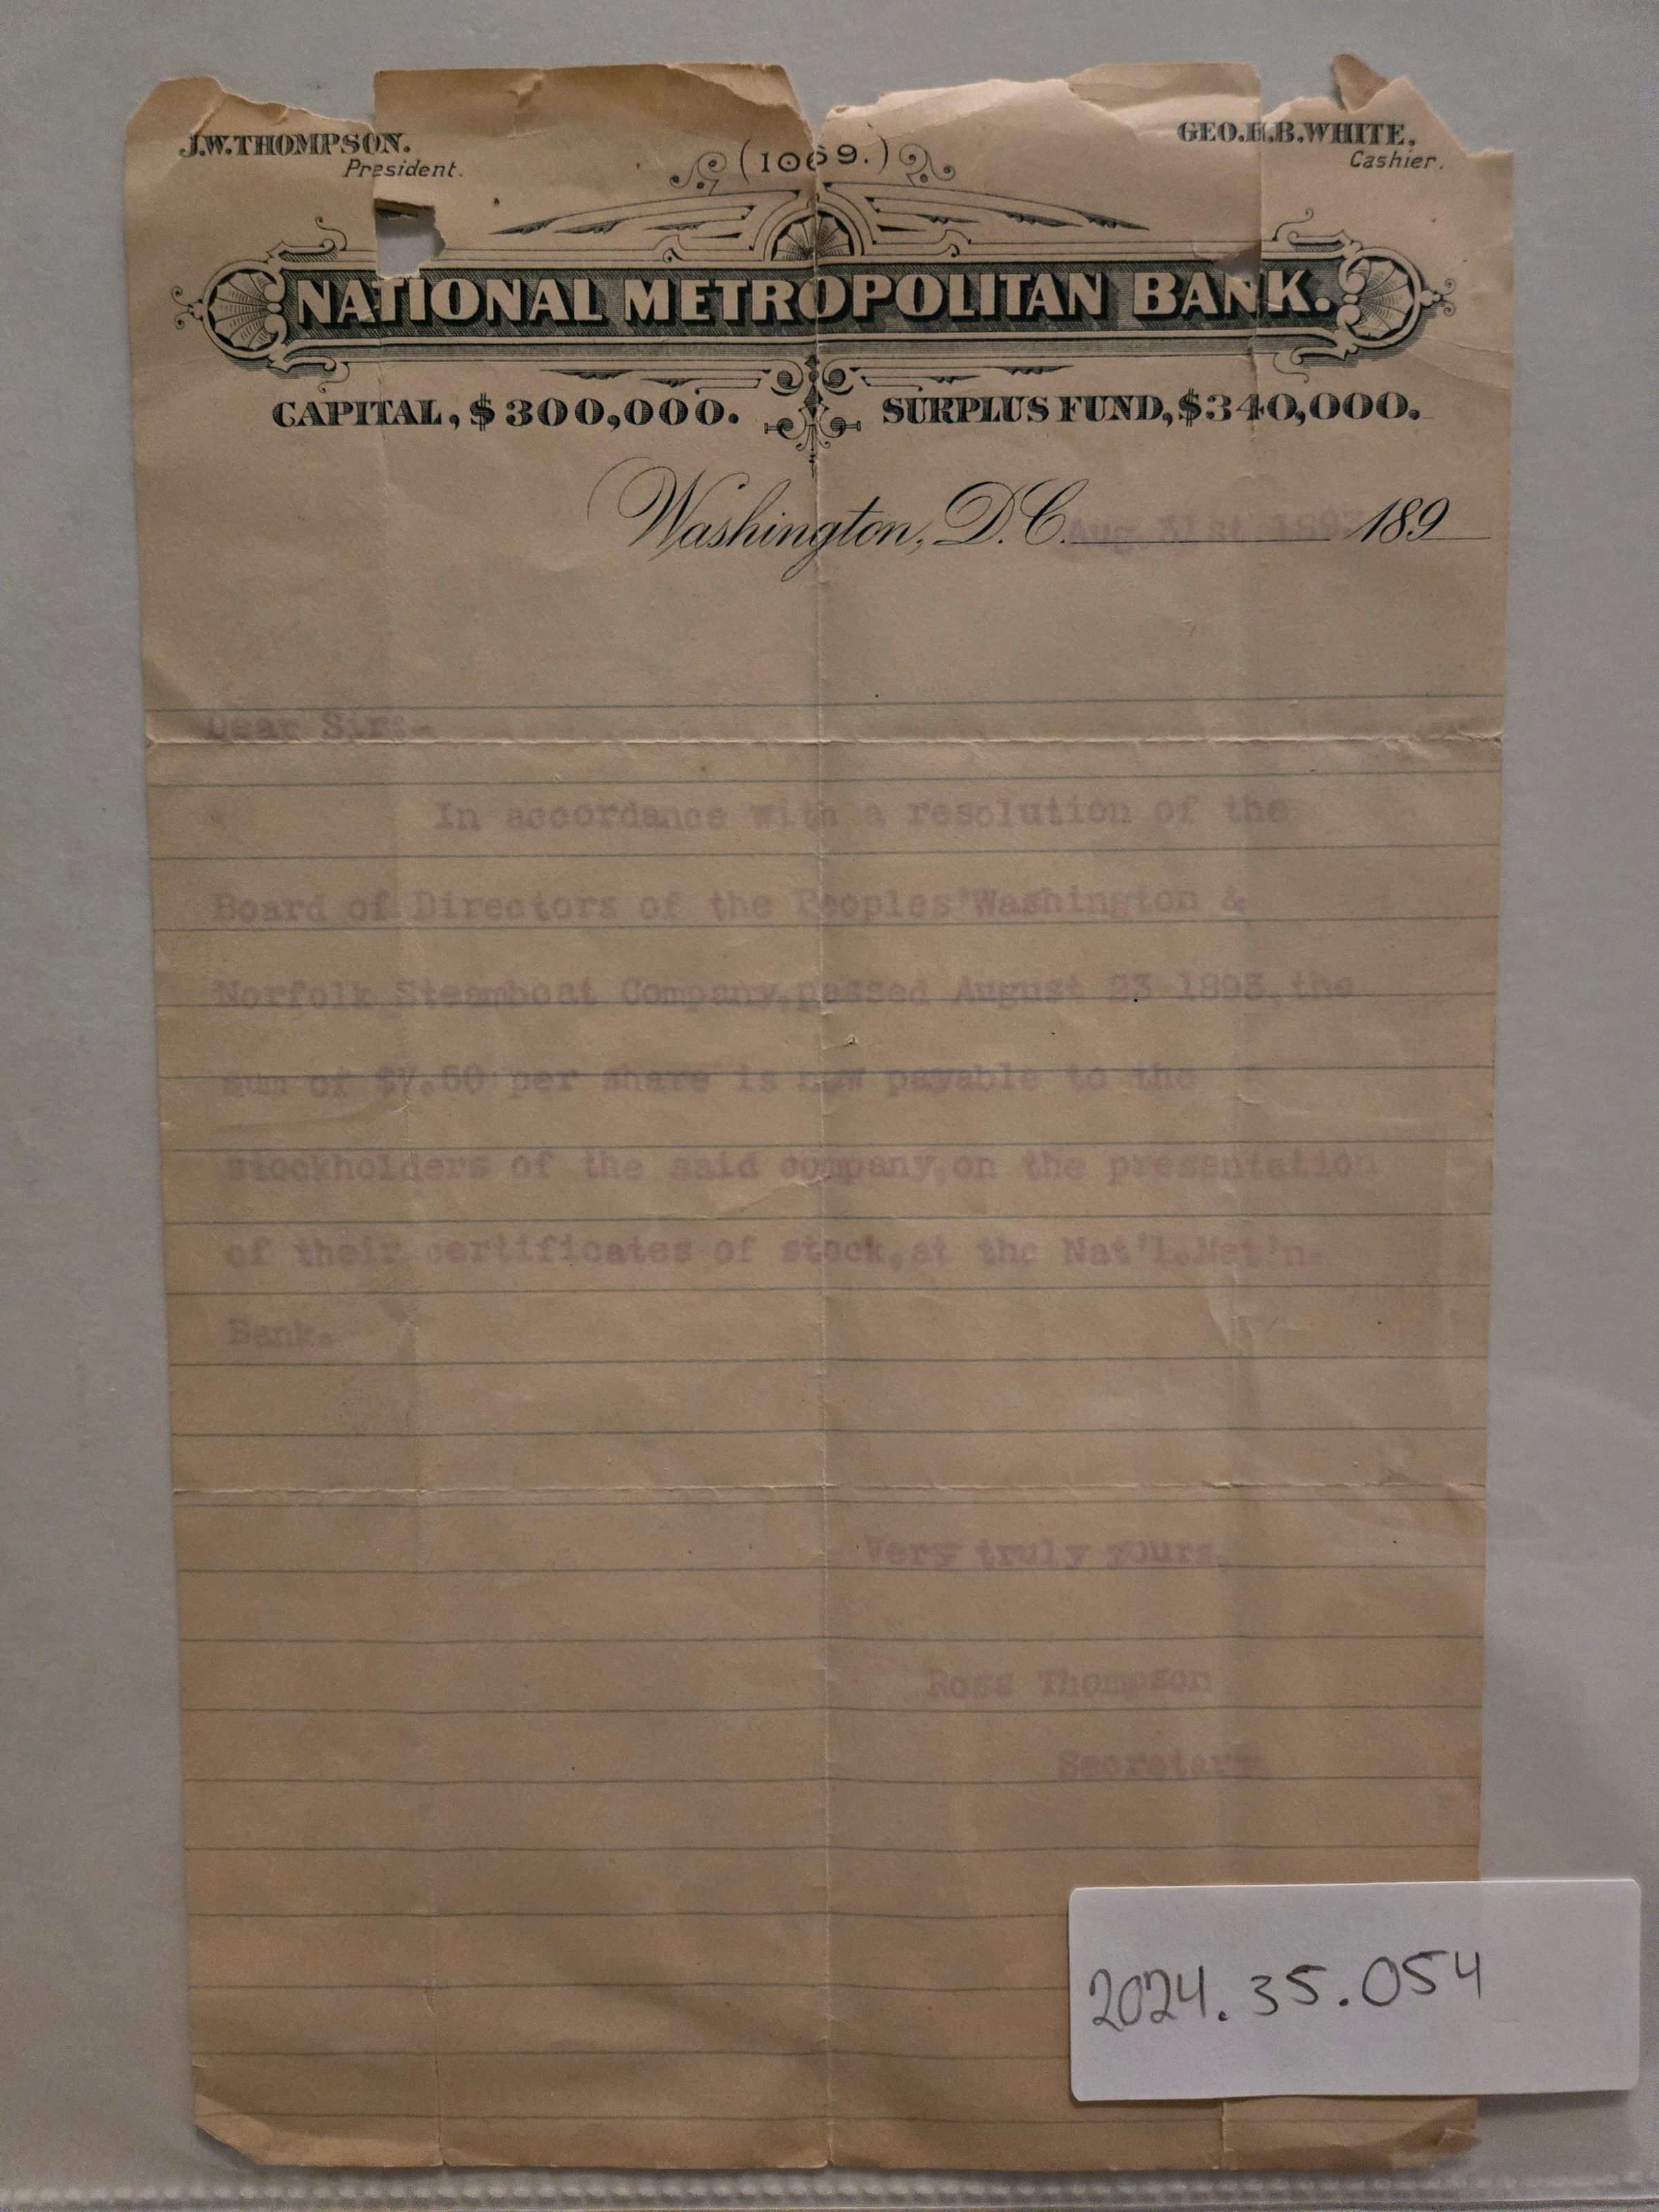 J.W.THOMPSON.
President.
(1069.)
GEO.H.B.WHITE,
Cashier.
NATIONAL METROPOLITAN BANK.
CAPITAL, $300,000. SURPLUS FUND, $340,000.
Washington, D.C. Aug. 31st 1893 189
Dear Sir:-
In accordance with a resolution of the
Board of Directors of the Peoples'Washington &
Norfolk Steamboat Company,passed August 23 1893,the
sum of $7.50 per share is now payable to the
stockholders of the said company,on the presentation
of their certificates of stock,at the Nat'l.Met'n.
Bank.
Very truly yours
Ross Thompson
Secretary
2024.35.054